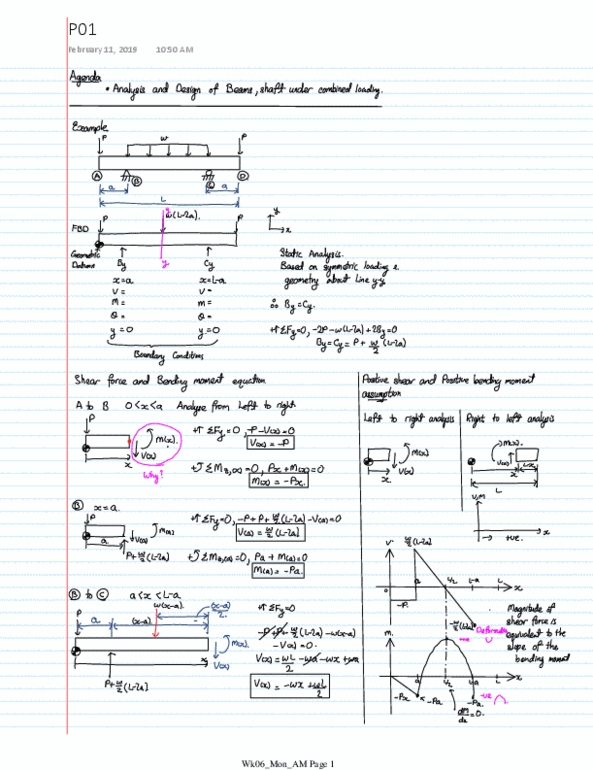 P01
February 11, 2019 10:50 AM
Agenda
• Analysis and Design of Beams, shaft under combined loading.
Example
P w P
A B C D
a a
L
FBD P w(L-2a). P
y x
Geometric Datum By y Cy
x=a x=L-a
V= V=
M= M=
θ= θ=
y=0 y=0
Boundary Conditions
Static Analysis.
Based on symmetric loading &
geometry about Line y-y
∴ By=Cy.
+↑ΣFy=0, -2P-w(L-2a)+2By=0
By=Cy=P+w/2(L-2a)
Shear force and Bending moment equation
A to B 0<x<a Analyse from Left to right
P
M(x).
V(x)
x
Why?
+↑ΣFy=0, -P-V(x)=0
V(x)=-P
+↺ΣM =0, Px+M(x)=0
M(x)=-Px.
B x=a.
P
a V(a) M(a)
P+w/2(L-2a)
+↑ΣFy=0, -P+P+w/2(L-2a)-V(a)=0
V(a)=w/2(L-2a)
+↺ΣM =0, Pa+M(a)=0
M(a)=-Pa.
B to C a<x<L-a
w(x-a) (x-a)/2
P a (x-a)
M(x)
x V(x)
P+w/2(L-2a)
+↑ΣFy=0
-P+P+w/2(L-2a)-w(x-a)
-V(x)=0.
V(x)=wL/2-wa-wx+wa
V(x)=-wx+wL/2
Positive shear and Positive bending moment
assumption
Left to right analysis Right to left analysis
M(x)
V(x)
x
M(x).
V(x)
x L-x
L
V,M
x
→ +ve.
V w/2(L-2a)
0 a L/2 L-a L x
-P
-w/2(L-2a)
Magnitude of
shear force is
equivalent to the
slope of the
bending moment
M.
+ve
L/2 L-a L x
-Px -Pa -Pa
-ve
dM/dx=0.
Wk06_Mon_AM Page 1